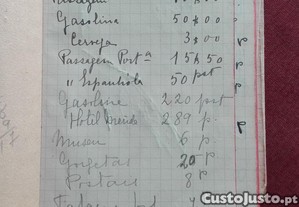 Gasolina 50$00
Cerveja 3$00 P
Passagem Port.ª 15$50 P
" Espanhola 50 pst
Gasoline 220 pst
Hotel 289 P P
Museu 6 P
Gorgetas 20 P
Postais 8 P
CustoJusto.pt